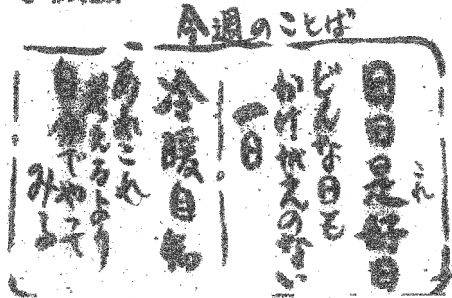 今週のことば
日日是好日
これ
どんな日も
かけがえのない
一日
冷暖自知
あれこれ
考えるより
でやって
みよ